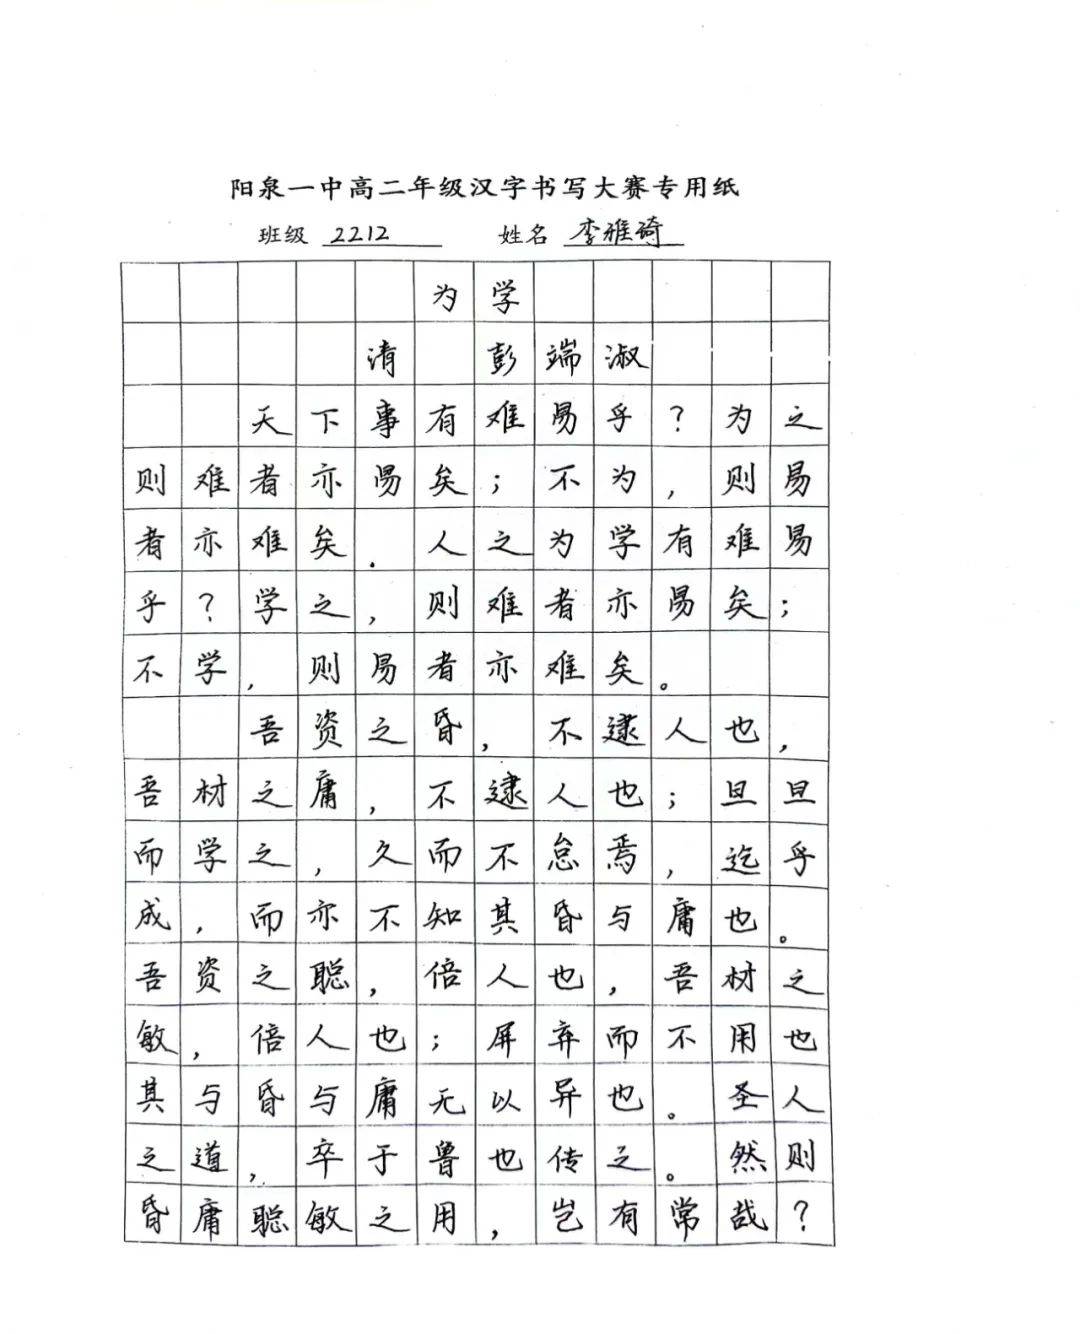 阳泉一中高二年级汉字书写大赛专用纸
班级 2212 姓名 李雅琦
为学
清 彭端淑
天下事有难易乎？为之
则难者亦易矣；不为，则易
者亦难矣．人之为学有难易
乎？学之，则难者亦易矣；
不学，则易者亦难矣。
吾资之昏，不逮人也，
吾材之庸，不逮人也；旦旦
而学之，久而不怠焉，迄乎
成，而亦不知其昏与庸也。
吾资之聪，倍人也，吾材之
敏，倍人也；屏弃而不用也
其与昏与庸无以异也。圣人
之道，卒于鲁也传之。然则
昏庸聪敏之用，岂有常哉？